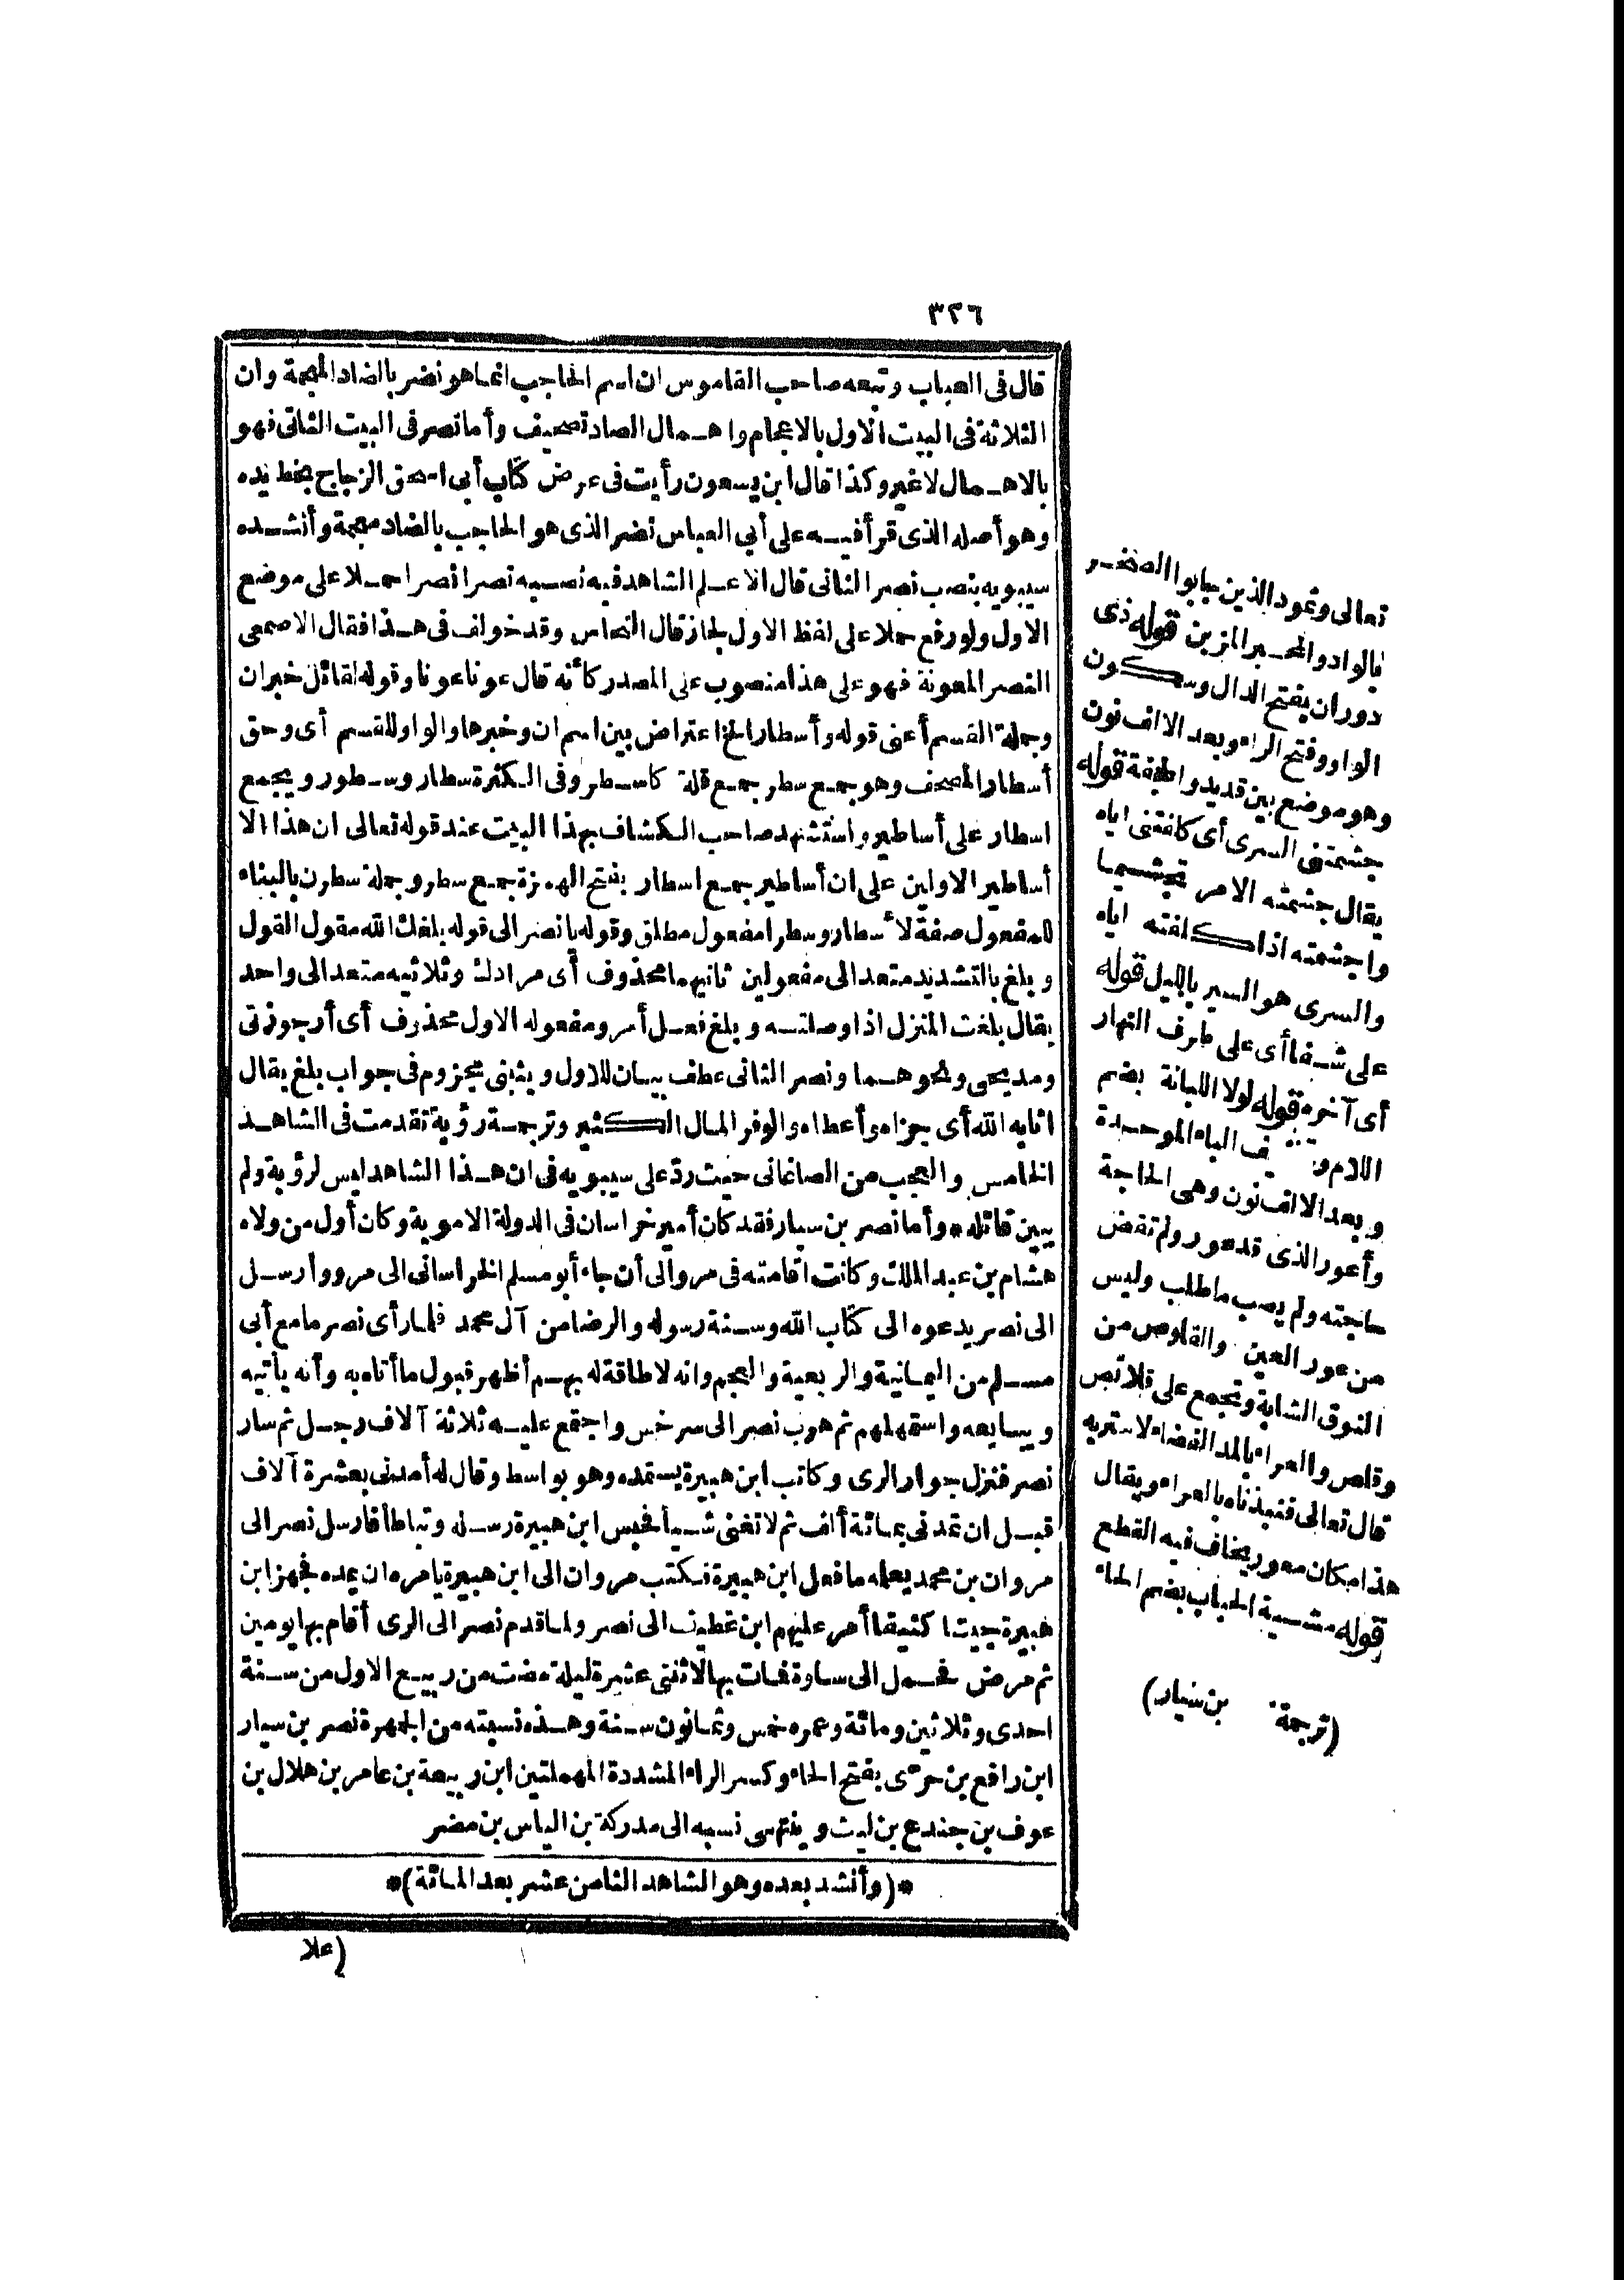 ٣٢٦
قال فى العباب وتبعه صاحب القاموس ان اسم الحاجب انما هو نضر بالضاد المعجمة وان
الثلاثة فى البيت الاول بالاعجام واهمال الصاد تصحيف وأما نصر فى البيت الثانى فهو
بالاهمال لا غير وكذا قال ابن يسعون رأيت فى عرض كتاب أبى اسحق الزجاج بخط يده
وهو أصله الذى قرأ فيه على أبى العباس نضر الذى هو الحاجب بالضاد معجمة وأنشده
سيبويه بنصب نصر الثانى قال الاعلم الشاهد فيه نصبه نصرا نصرا حملا على موضع
الاول ولو رفع حملا على لفظ الاول لجاز قال النحاس وقد خولف فى هذا فقال الاصمعى
النصر المعونة فهو على هذا منصوب على المصدر كأنه قال عونا عونا وقوله لقائل خبر ان
وجملة القسم أعنى قوله وأسطار الخ اعتراض بين اسم ان وخبرها والواو للقسم أى وحق
أسطار المصحف وهو جمع سطر جمع قلة كاسطر وفى الكثرة سطار وسطور ويجمع
اسطار على أساطير واستشهد صاحب الكشاف بهذا البيت عند قوله تعالى ان هذا الا
أساطير الاولين على ان أساطير جمع اسطار بفتح الهمزة جمع سطر وجملة سطرن بالبناء
للمفعول صفة لأسطار وسطرا مفعول مطلق وقوله يا نصر الى قوله بلغك الله مقول القول
وبلغ بالتشديد متعد الى مفعولين ثانيهما محذوف أى مرادك وثلاثيه متعد الى واحد
يقال بلغت المنزل اذا وصلته وبلغ فعل أمر ومفعوله الاول محذوف أى أرجوزتى
ومديحى ونحوهما ونصر الثانى عطف بيان للاول ويثبنى مجزوم فى جواب بلغ يقال
اثابه الله أى جزاه وأعطاه والوفر المال الكثير وترجمة رؤبة تقدمت فى الشاهد
الخامس والعجب من الصاغانى حيث ردّ على سيبويه فى ان هذا الشاهد ليس لرؤبة ولم
يبين قائله * وأما نصر بن سيار فقد كان أمير خراسان فى الدولة الاموية وكان أول من ولاه
هشام بن عبد الملك وكانت اقامته فى مرو الى أن جاء أبو مسلم الخراسانى الى مرو وأرسل
الى نصر يدعوه الى كتاب الله وسنة رسوله والرضا من آل محمد فلما رأى نصر ما مع أبى
مسلم من اليمانية والربعية والعجم وانه لا طاقة له بهم أظهر قبول ما أتاه به وأنه يأتيه
ويبايعه واستمهلهم ثم هرب نصر الى سرخس واجتمع عليه ثلاثة آلاف رجل ثم سار
نصر فنزل جوار الرى وكاتب ابن هبيرة يستمده وهو بواسط وقال له أمدنى بعشرة آلاف
قبل ان تمدنى بمائة ألف ثم لا تغنى شيأ فحبس ابن هبيرة رسله وتباطأ فارسل نصر الى
مروان بن محمد يعلمه ما فعل ابن هبيرة فكتب مروان الى ابن هبيرة يامره ان يمده فجهز ابن
هبيرة جيشا كثيفا أمر عليهم ابن غطيف الى نصر ولما قدم نصر الى الرى أقام بها يومين
ثم مرض فحمل الى ساوة فمات بها لاثنتى عشرة ليلة مضت من ربيع الاول من سنة
احدى وثلاثين ومائة وعمره خمس وثمانون سنة وهذه نسبته من الجمهرة نصر بن سيار
ابن رافع بن حرّى بفتح الحاء وكسر الراء المشددة المهملتين ابن ربيعة بن عامر بن هلال بن
عوف بن جندع بن ليث وينتهى نسبه الى مدركة بن الياس بن مضر
*(وأنشد بعده وهو الشاهد الثامن عشر بعد المائة)*
(علا
تعالى وثمود الذين جابوا الصخر
بالواد والمحبر المزين قوله ذى
دوران بفتح الدال وسكون
الواو وفتح الراء وبعد الالف نون
وهو موضع بين قديد والجحفة قوله
جشمتنى السرى أى كلفتنى اياه
يقال جشمته الامر تجشيما
واجشمته اذا كلفته اياه
والسرى هو السير بالليل قوله
على شفا أى على طرف النهار
أى آخره قوله لولا اللبانة بضم
اللام و ف الباء الموحدة
وبعد الالف نون وهى الحاجة
وأعور الذى قد عور ولم تقض
حاجته ولم يصب ما طلب وليس
من عور العين والقلوص من
النوق الشابة وتجمع على قلائص
وقلص والعراء بالمد الفضاء لا ستر به
قال تعالى فنبذناه بالعراء ويقال
هذا مكان معور يخاف فيه القطع
قوله مشية الحباب بضم الحاء
(ترجمة بن سيار)